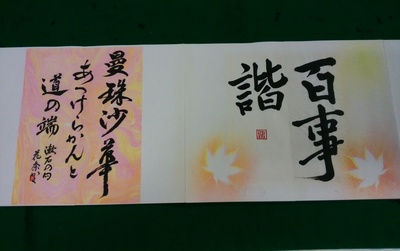 百事
諧
曼珠沙華
あつけらかんと
道の端
漱石の句